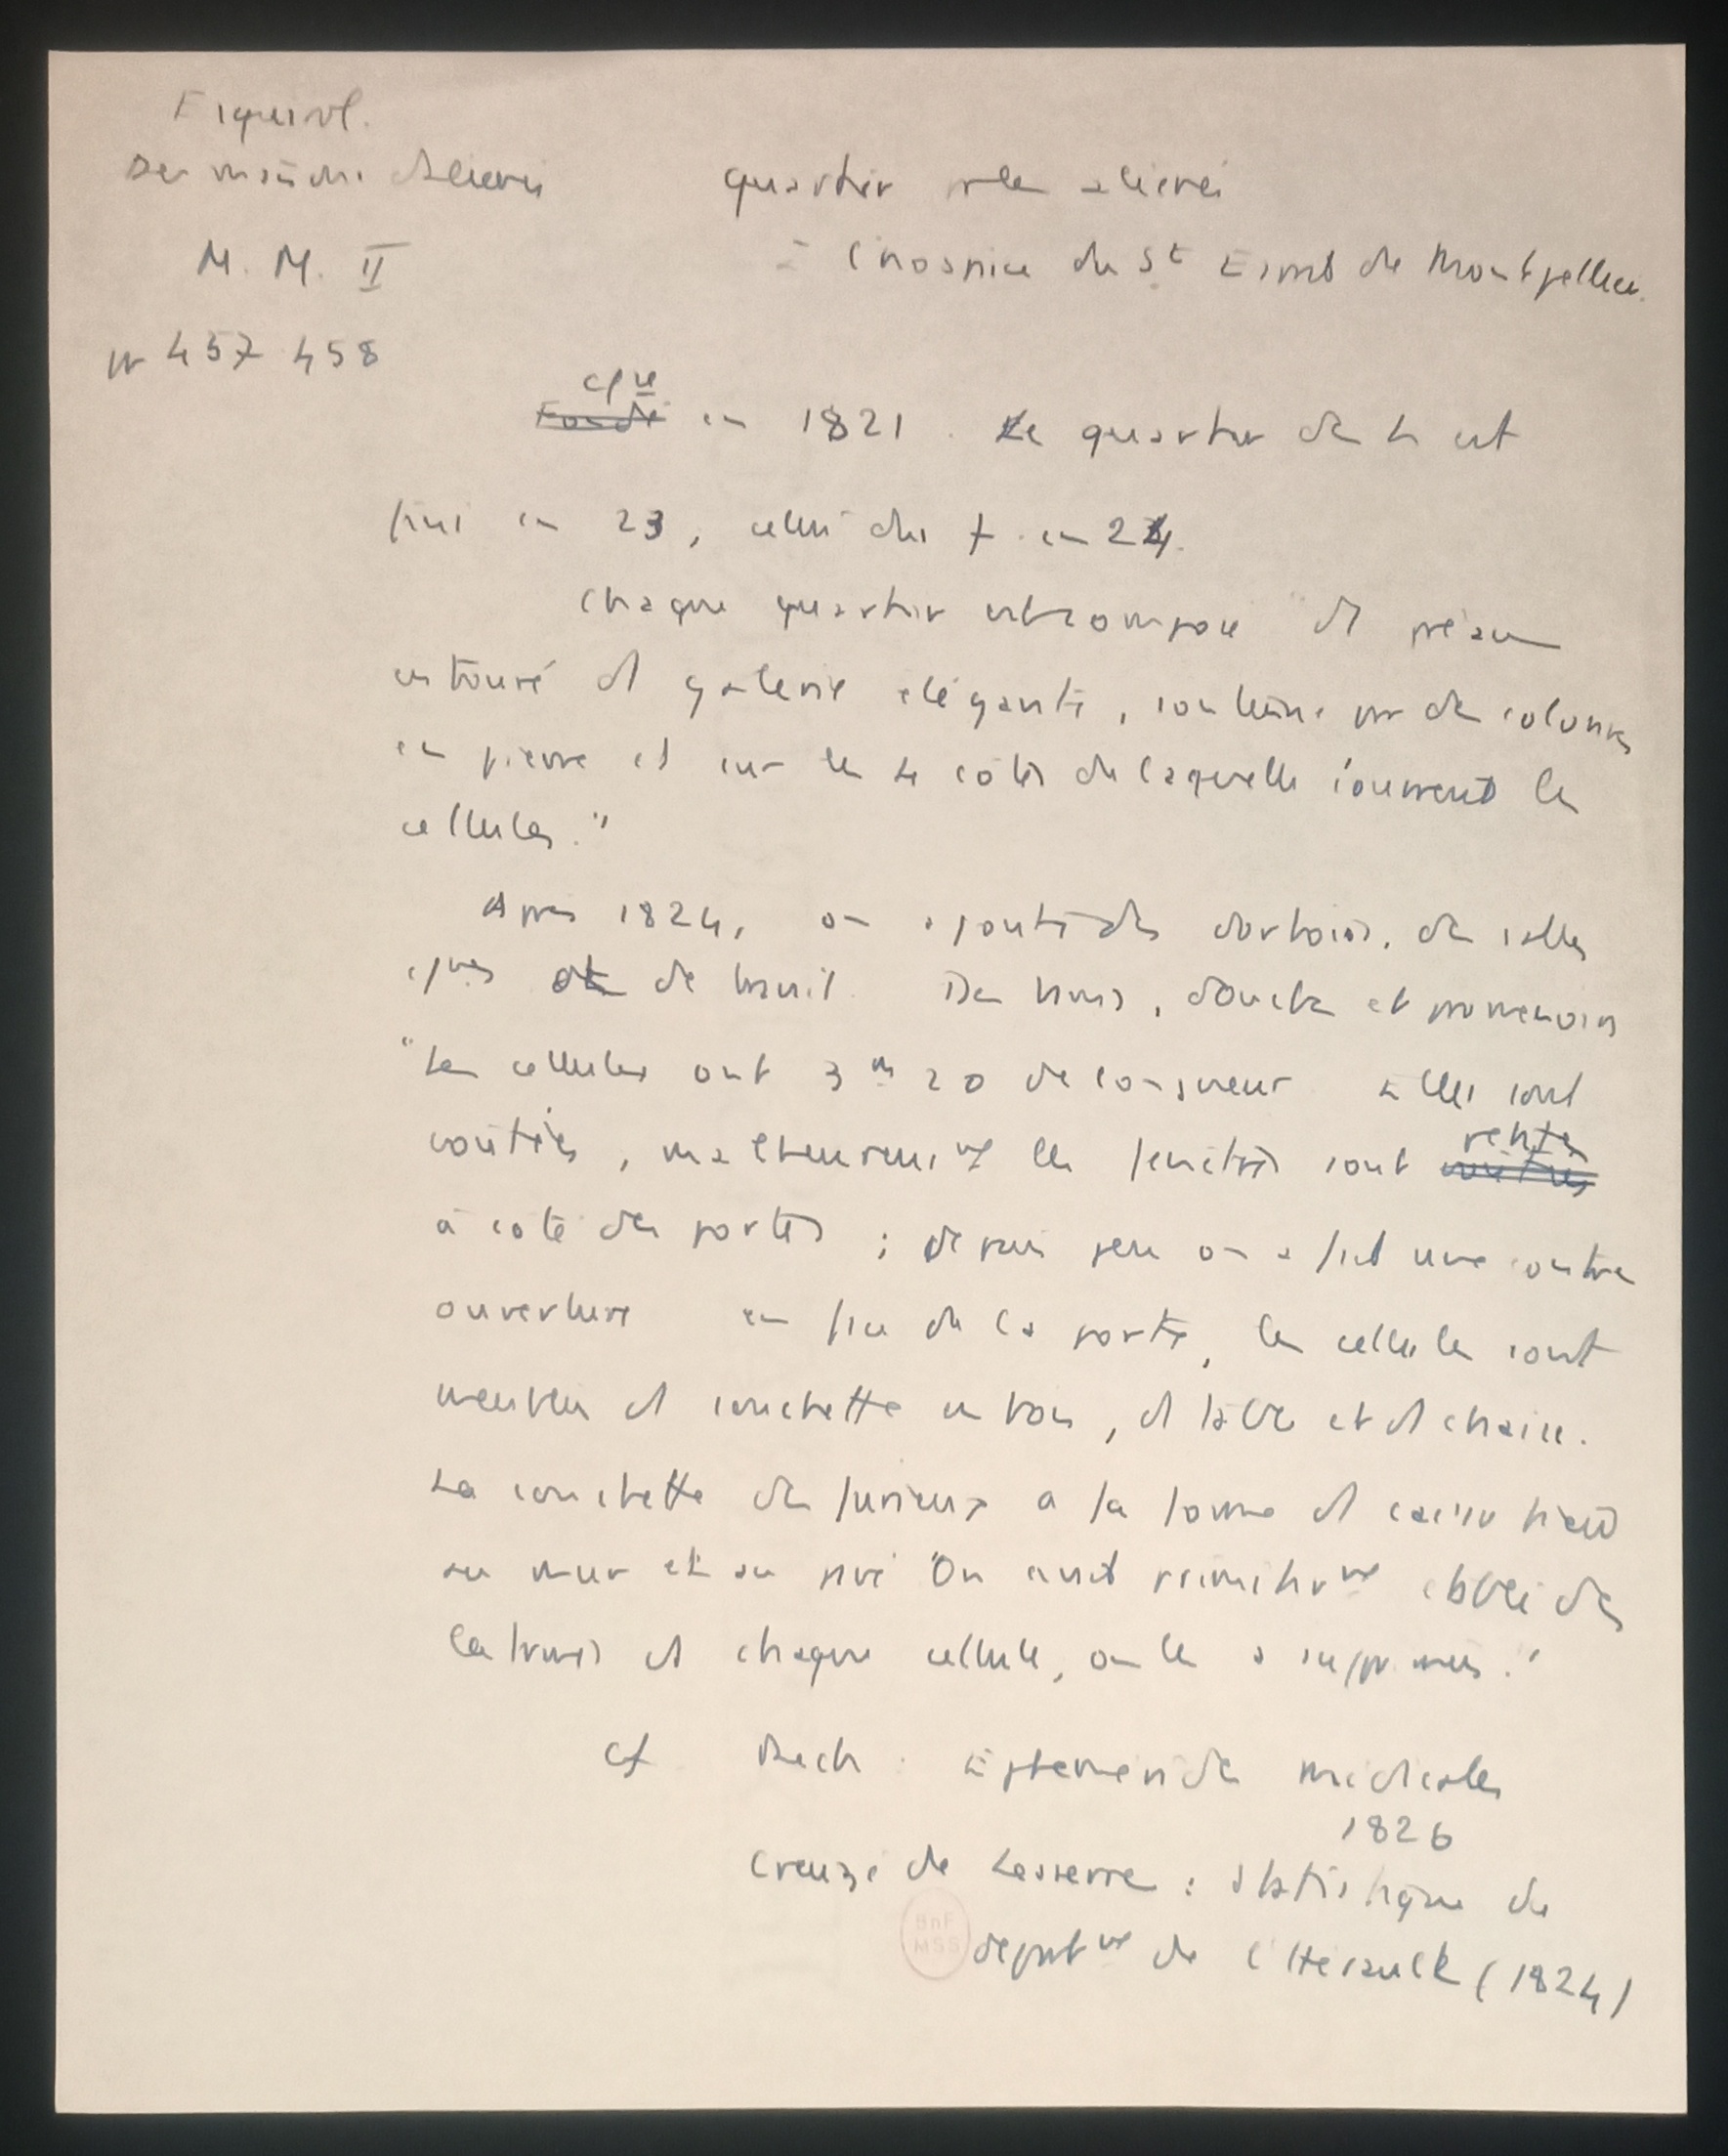 Esquirol.
Des maisons d'aliénés
M. M. II
pp 457 458
quartier des aliénés
à l'hospice du St Eloi de Montpellier.
cſ ce
Fondé en 1821. Le quartier des h est
fini en 23, celui des f. en 24.
Chaque quartier est composé d préau
entouré d galerie élégante, soutenue par des colonnes
en pierre et sur les 4 côtés de laquelle s'ouvrent les
cellules."
Après 1824, on ajoute des dortoirs, des salles
de travail. Des bains, douches et promenoirs
"Les cellules ont 3 m 20 de longueur. Elles sont
voûtées, malheureusmt les fenêtres sont
à côté des portes ; depuis peu on a fait une contre
ouverture en face de la porte, les cellules sont
meublées d couchette en bois, d table et d chaise.
La couchette des furieux a la forme d caisse fixée
au mur et au pavé "On avait primitivmt établi des
latrines d chaque cellule, on les a supprimées."
cf Rech : Ephémérides médicales
1826
Creuzé de Lesserre : Statistique du
deprtmt de l'Hérault (1824)
BnF
MSS